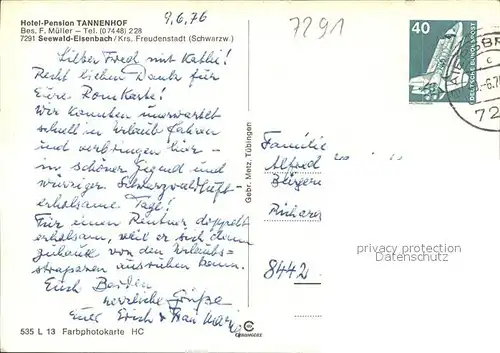 Hotel-Pension TANNENHOF
Bes. F. Müller – Tel. (07448) 228
7291 Seewald-Eisenbach / Krs. Freudenstadt (Schwarzw.)
9.6.76
7291
Lieber Fred mit Kathi!
Recht lieben Dank für
Eure Romkarte!
Wir konnten unerwartet
schnell in Urlaub fahren
und verbringen hier –
in schöner Gegend und
würziger Schwarzwaldluft
erholsame Tage!
Für einen Rentner doppelt
erholsam, weil er sich dann
zuhause von den Urlaubs-
strapazen ausruhen kann.
Euch Beiden
herzliche Grüße
Euer Erich & Frau Maria
535 L 13 Farbphotokarte HC
Gebr. Metz, Tübingen
40
DEUTSCHE BUNDESPOST
c
72
Familie
Alfred
8442
privacy protection
Datenschutz